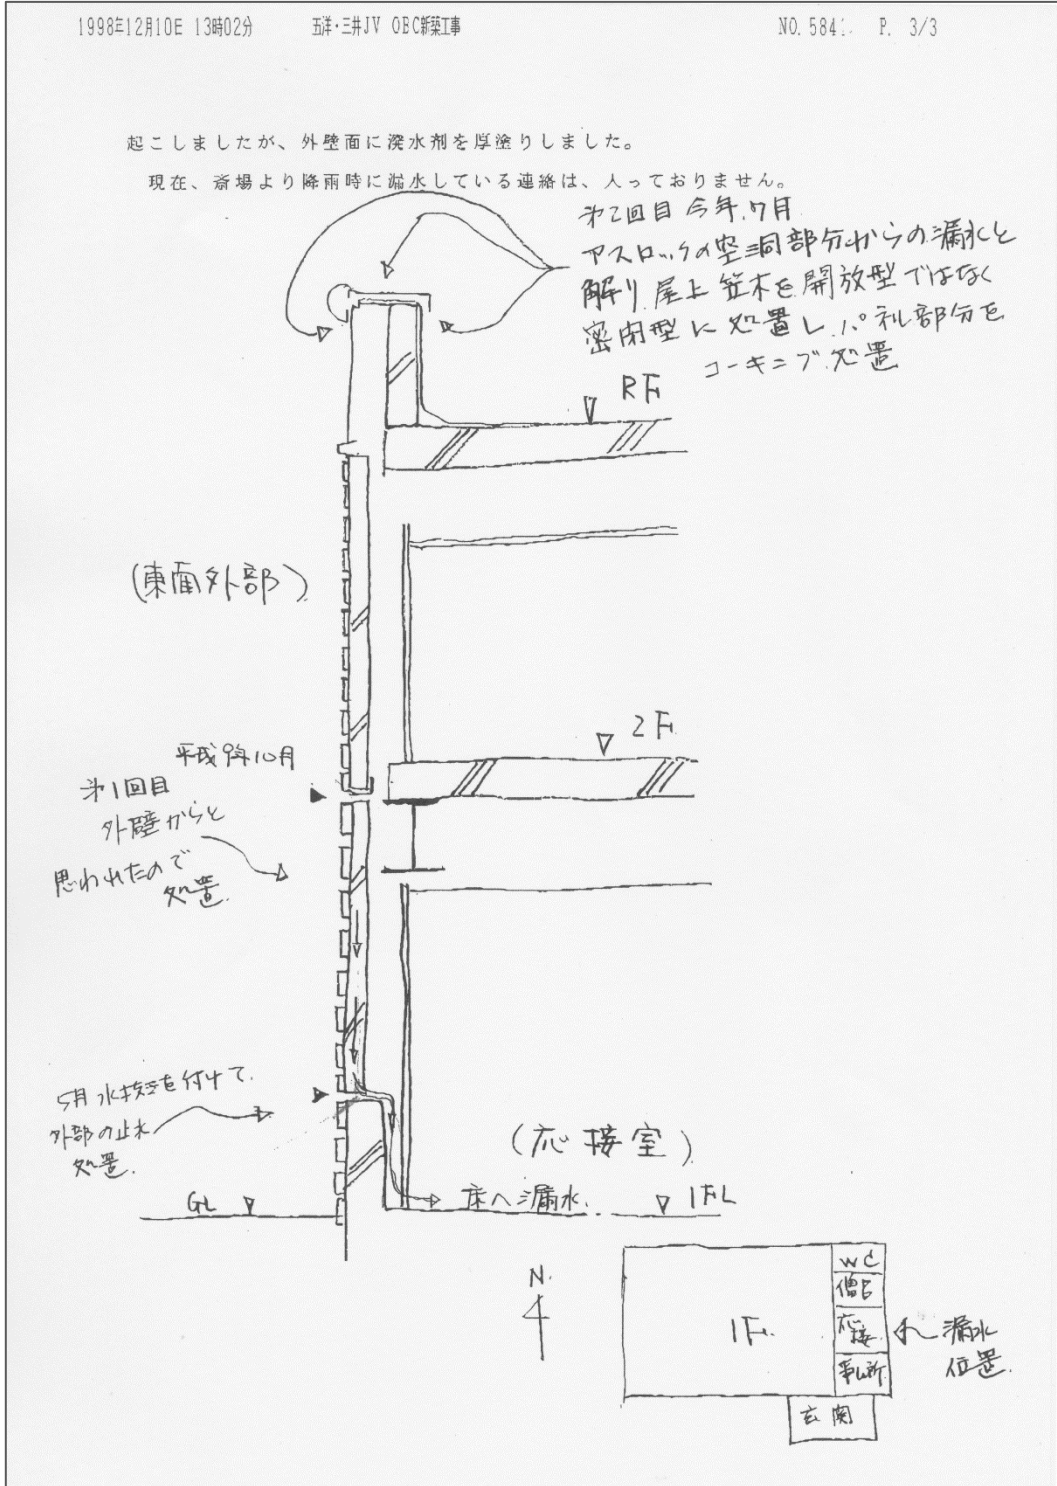 1998年12月10日 13時02分 五洋・三井JV OBC新築工事 NO.584 P. 3/3
起こしましたが、外壁面に溌水剤を厚塗りしました。
現在、斎場より降雨時に漏水している連絡は、入っておりません。
第2回目 今年.7月
アスロックの空洞部分からの漏水と
解り 屋上 笠木を開放型ではなく
密閉型に処置し.パネル部分を
コーキング処置
RF
(東面外部)
2F
平成9年10月
第1回目
外壁からと
思われたので
処置.
5月 水切を付けて.
外部の止水
処置.
(応接室)
GL
床へ漏水.
1FL
N.
WC
1F.
応接
漏水
位置.
玄関